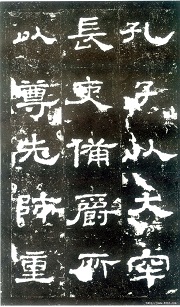 孔子以大牢
長吏備爵所
以尊先師重